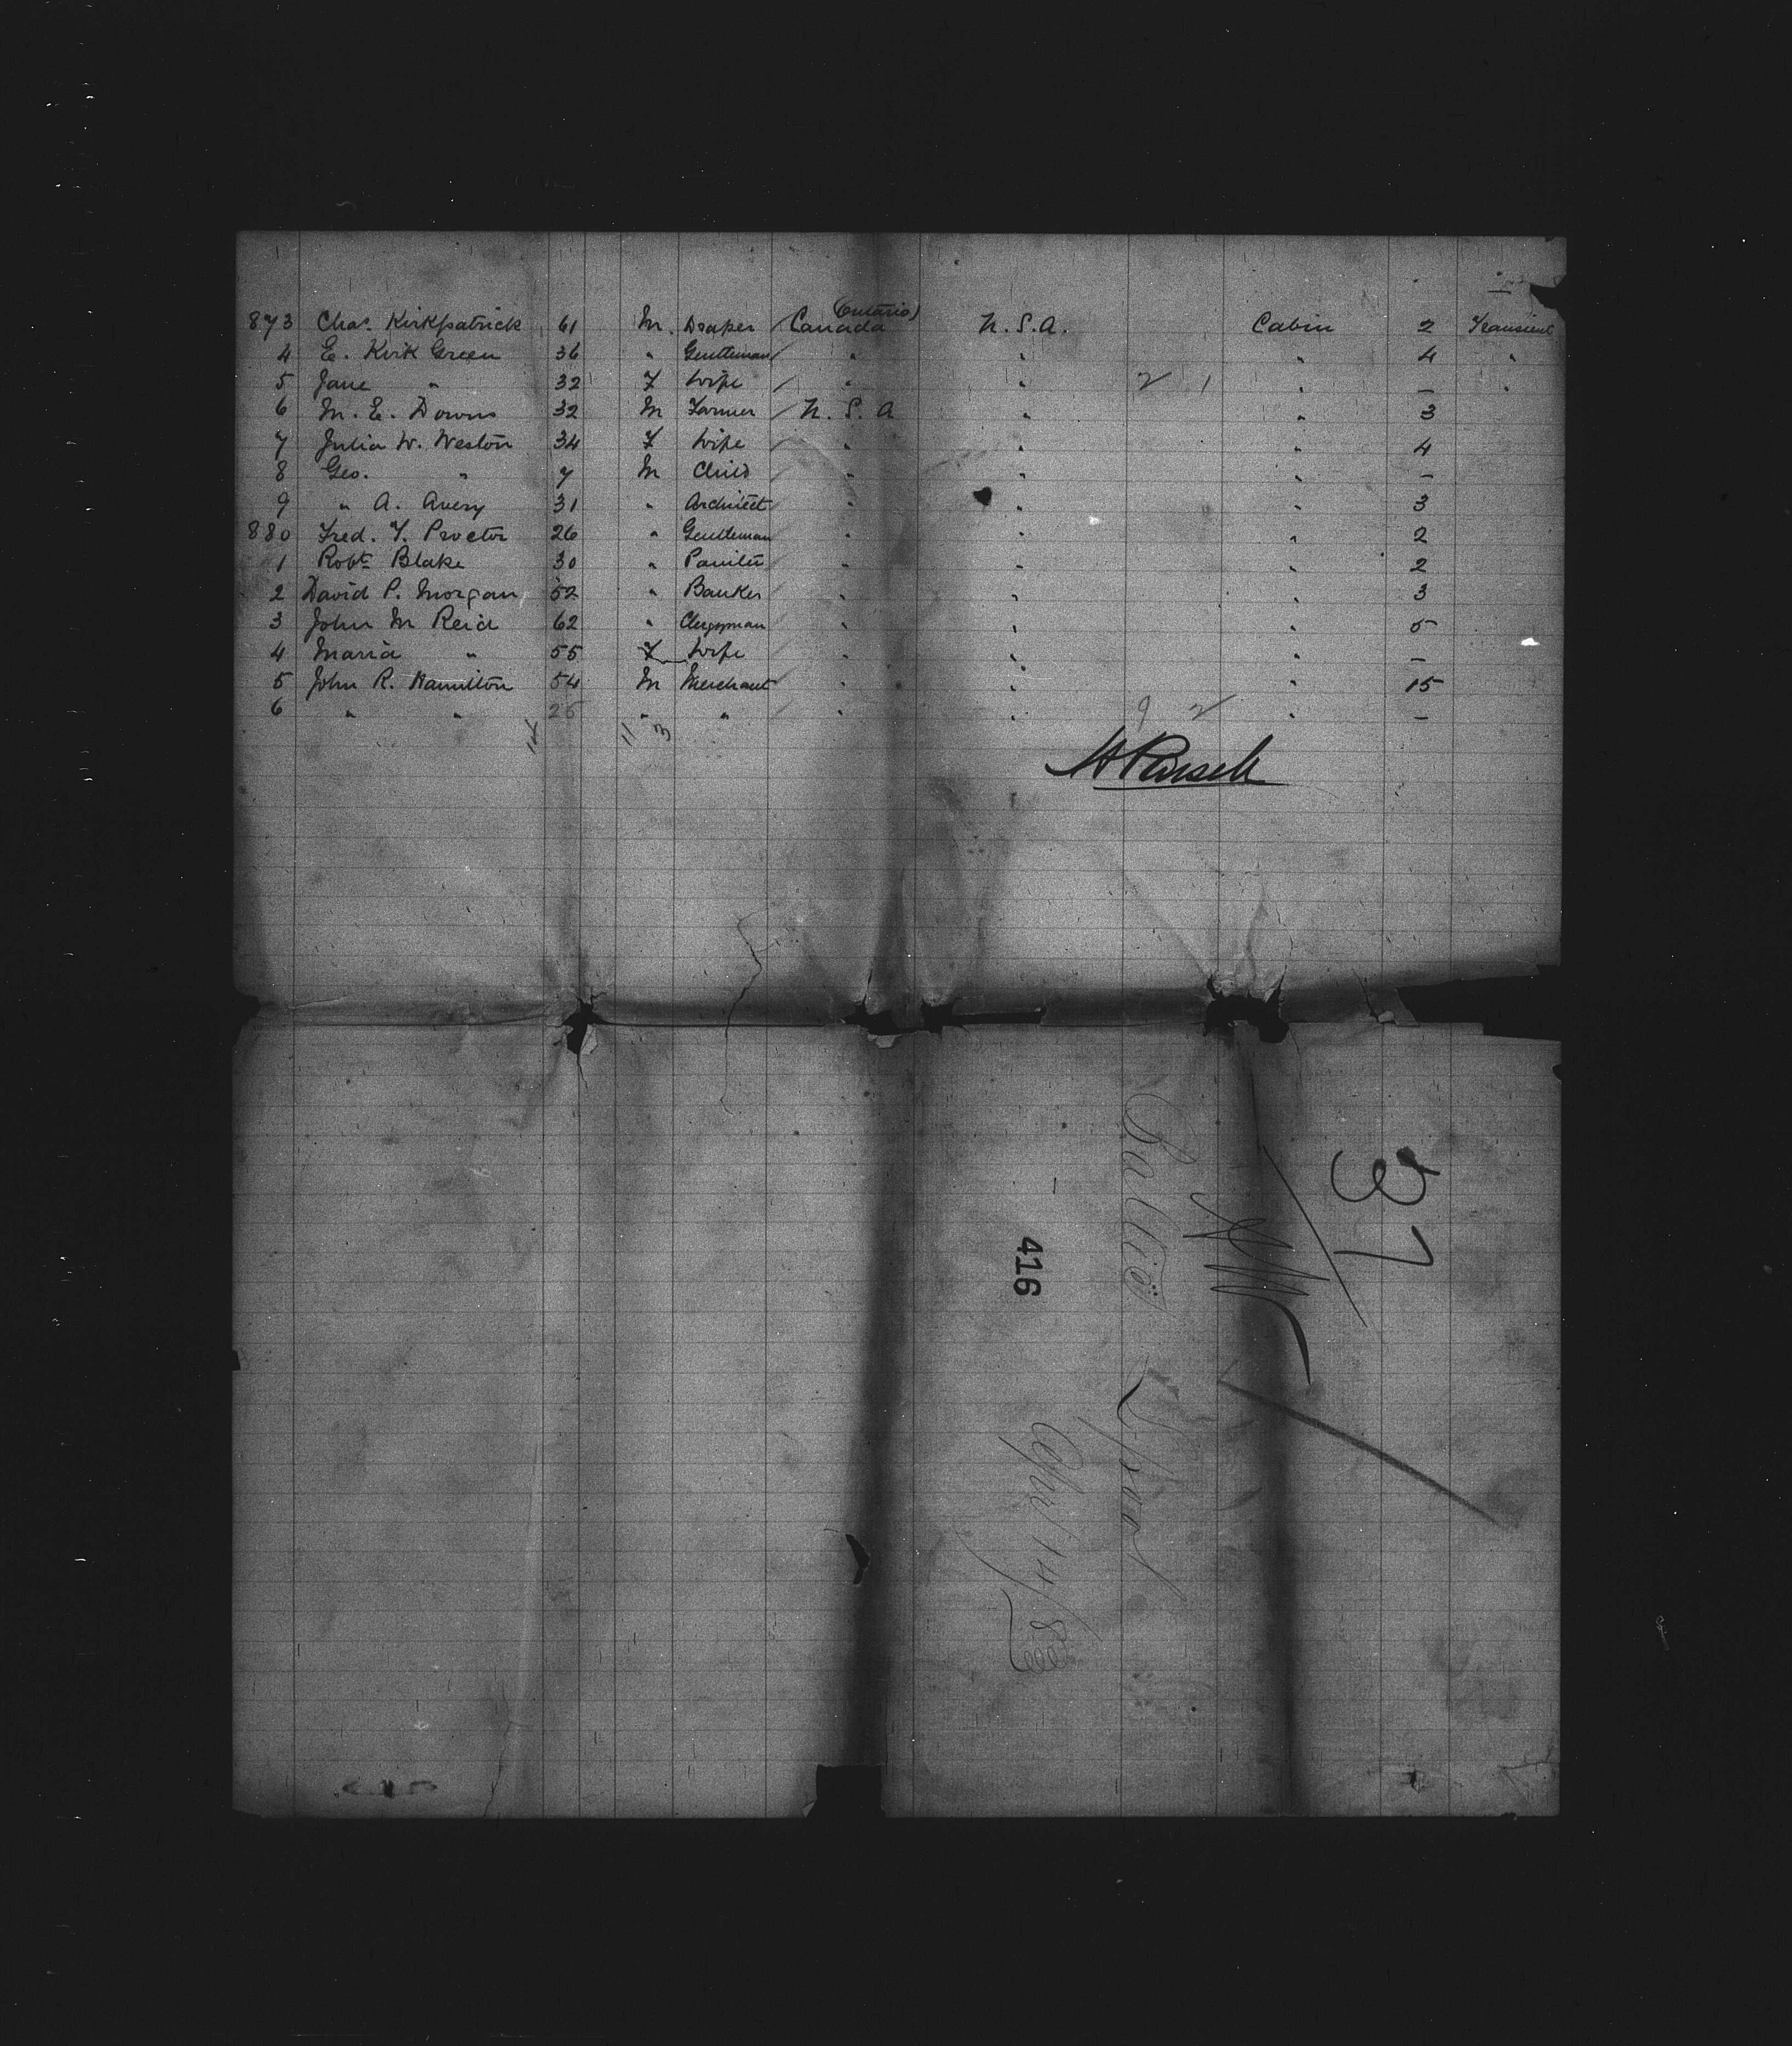 873 Chas. Kirkpatrick 61 M. Draper / Canada (Ontario) U.S.A. Cabin 2 Transient
4 E. Kirk Green 36 " Gentleman / " " " 4 "
5 Jane " 32 F Wife / " " 2 1 " — "
6 M. E. Downs 32 M Farmer / U.S.A " " 3
7 Julia W. Weston 34 F Wife / " " " 4
8 Geo. " 7 M Child / " " " —
9 " A. Avery 31 " Architect / " " " 3
880 Fred. F. Proctor 26 " Gentleman " " " 2
1 Robt. Blake 30 " Painter / " " " 2
2 David P. Morgan 52 " Banker / " " " 3
3 John M Reid 62 " Clergyman " " " 5
4 Maria " 55 F Wife " " " —
5 John R. Hamilton 54 M Merchant / " " " 15
6 " " 25 " " / " " 9 2 " —
14 11 3
H Parsell
37
Baltic
L'pool
416
April 14/83